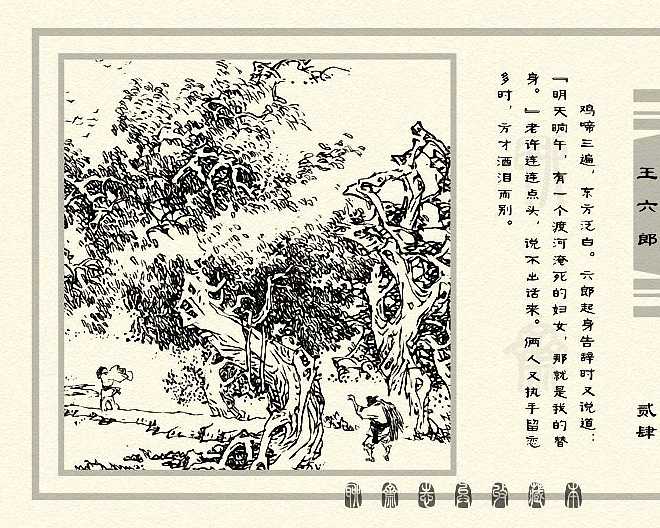 鸡啼三遍，东方泛白。六郎起身告辞时又说道：
『明天晌午，有一个渡河淹死的妇女，那就是我的替
身。』老许连连点头，说不出话来。俩人又执手留恋
多时，方才洒泪而别。
王六郎
贰肆